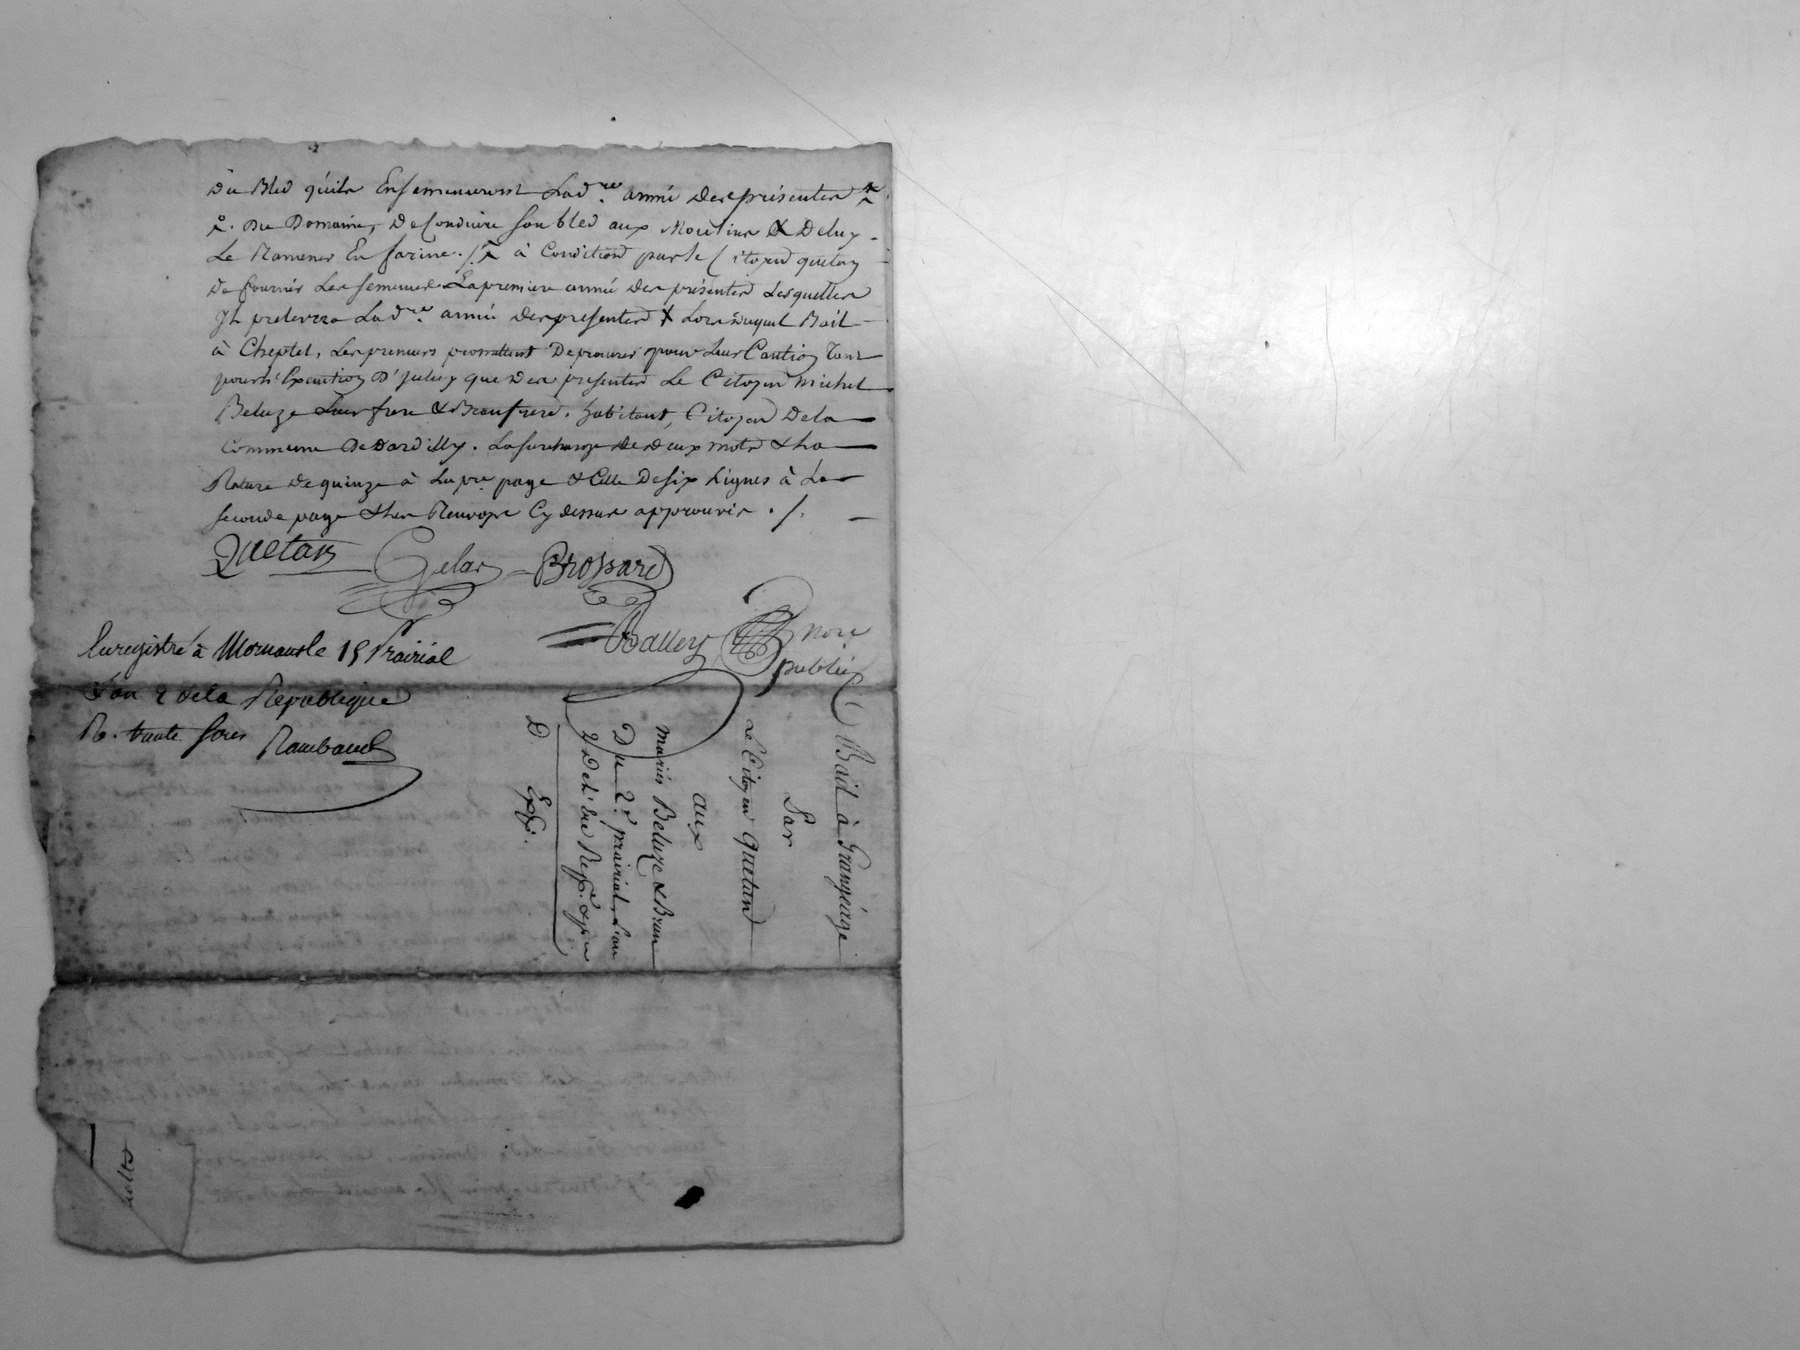 du Bled qu'ils Ensemenceront Lad.re année des présentes
Du Domaine, De Conduire son bled aux Moulins & Deluy
Le Ramener En farine ./. à Condition par le Citoyen quetan
De fournir Les semences La premiere année des présentes Lesquelles
Il prelevera Lad.re année des presentes & Lors duquel Bail
à Cheptel, Les preneurs promettent De procurer pour Leur Caution Tant
pour L'Execution D'iceluy que des presentes Le Citoyen michel
Beluze Leur frere & Beaufrere, habitant, Citoyen Dela
Commune De dardilly. La surcharge de deux mots & la
Rature de quinze à La pre. page & Celle De six Lignes à La
seconde page & Les Renvoys Cy dessus approuvés ./.
Quetan Gelas Brossard
Balley nore
public
Enregistré à Mornant le 15 Prairial
L'an 2 de la Republique
R. trente sous Rambaud
Bail à Grangéage
Par
Le Citoyen Quetand
aux
mariés Beluze & Brun
Du 2.e prairial, L'an
2 De la Rep.
D. Exp.